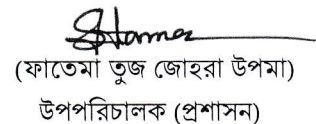 (ফাতেমা তুজ জোহরা উপমা)
উপপরিচালক (প্রশাসন)